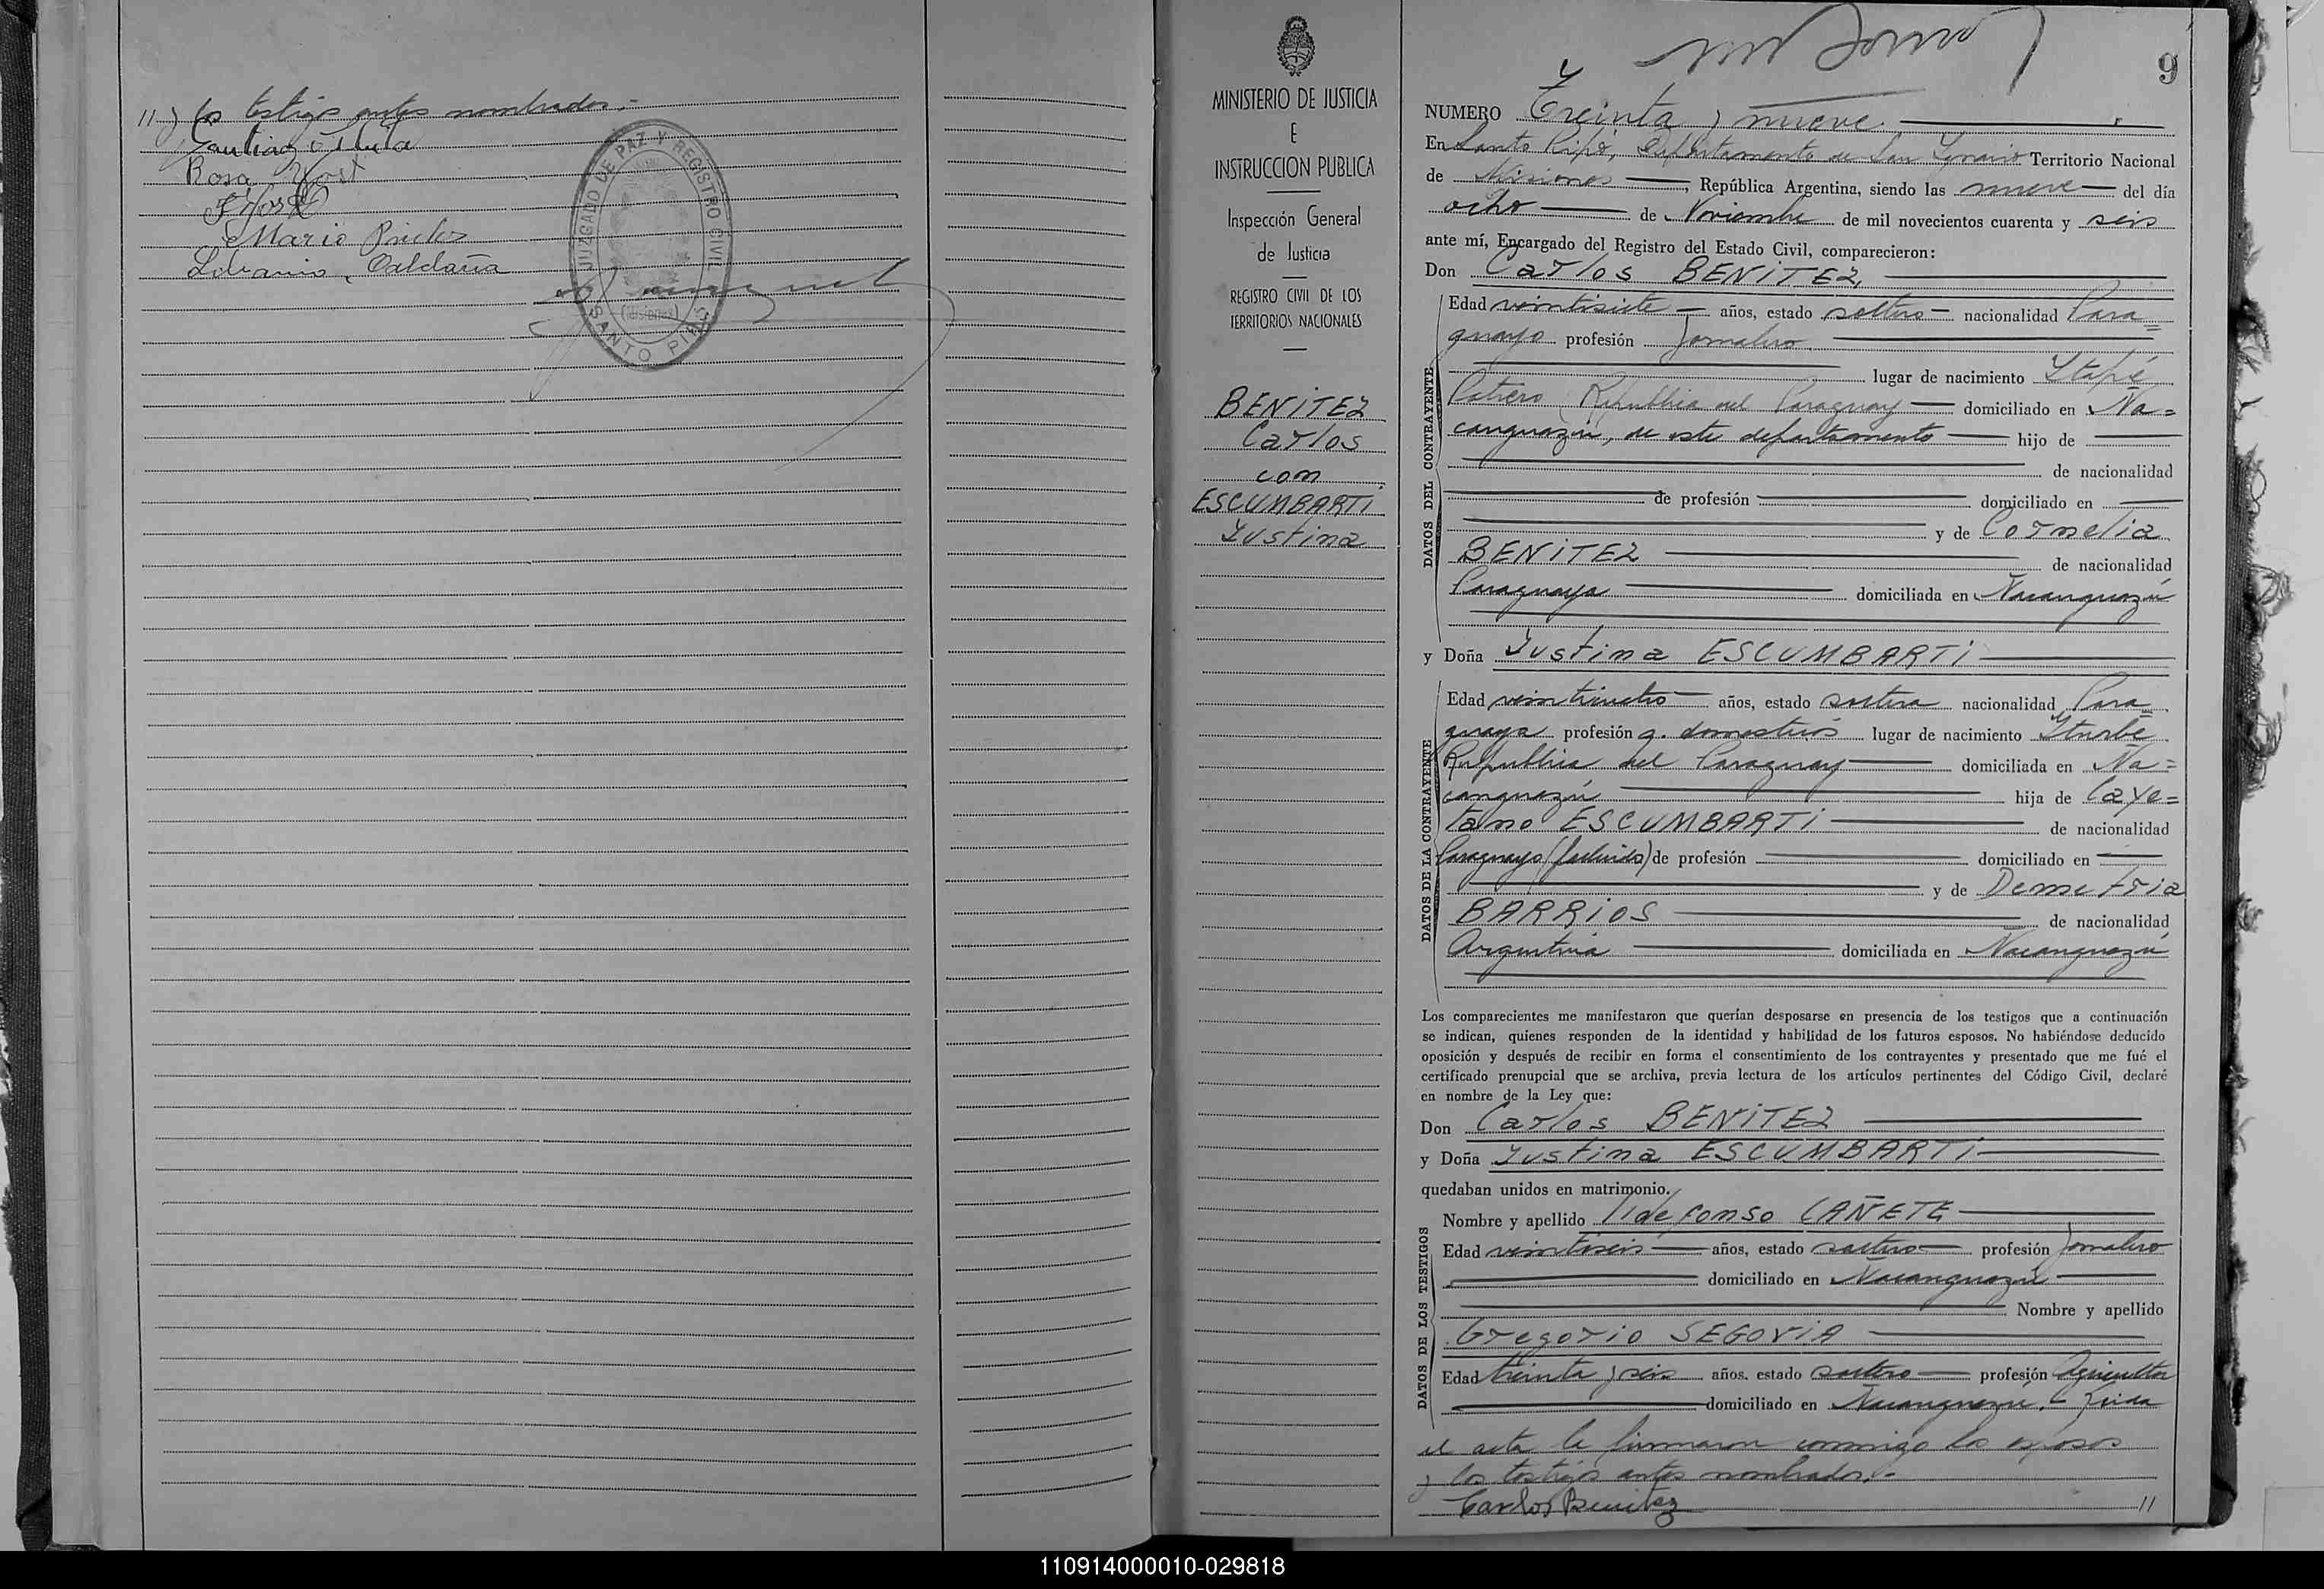 11 y los testigos antes nombrados.-
Santiago
Rosa Yost
F. Yost
Mario Prieto
Saldaña
JUZGADO DE PAZ Y REGISTRO CIVIL
(MISIONES)
SANTO PIPÓ
MINISTERIO DE JUSTICIA
E
INSTRUCCION PUBLICA
Inspección General
de Justicia
REGISTRO CIVIL DE LOS
TERRITORIOS NACIONALES
BENITEZ
Carlos
con
ESCUMBARTI
Justina
9
NUMERO Treinta y nueve
En Santo Pipó, departamento de San Ignacio Territorio Nacional
de Misiones, República Argentina, siendo las nueve del día
ocho de Noviembre de mil novecientos cuarenta y seis
ante mí, Encargado del Registro del Estado Civil, comparecieron:
Don Carlos BENITEZ,
DATOS DEL CONTRAYENTE
Edad veintisiete años, estado soltero nacionalidad Para=
guayo profesión Jornalero
lugar de nacimiento Ytapé
Potrero, República del Paraguay domiciliado en Ña=
canguazú, de este departamento hijo de
de nacionalidad
de profesión domiciliado en
y de Cornelia
BENITEZ de nacionalidad
Paraguaya domiciliada en Ñacanguazú
y Doña Justina ESCUMBARTI
DATOS DE LA CONTRAYENTE
Edad veinticuatro años, estado soltera nacionalidad Para=
guaya profesión q. domésticos lugar de nacimiento Yturbe
República del Paraguay domiciliada en Ña=
canguazú hija de Caye=
tano ESCUMBARTI de nacionalidad
Paraguayo (fallecido) de profesión domiciliado en
y de Demetria
BARRIOS de nacionalidad
Argentina domiciliada en Ñacanguazú
Los comparecientes me manifestaron que querían desposarse en presencia de los testigos que a continuación
se indican, quienes responden de la identidad y habilidad de los futuros esposos. No habiéndose deducido
oposición y después de recibir en forma el consentimiento de los contrayentes y presentado que me fué el
certificado prenupcial que se archiva, previa lectura de los artículos pertinentes del Código Civil, declaré
en nombre de la Ley que:
Don Carlos BENITEZ
y Doña Justina ESCUMBARTI
quedaban unidos en matrimonio.
DATOS DE LOS TESTIGOS
Nombre y apellido Ildefonso CAÑETE
Edad veintiseis años, estado soltero profesión Jornalero
domiciliado en Ñacanguazú
Nombre y apellido
Gregorio SEGOVIA
Edad treinta y seis años, estado soltero profesión Agricultor
domiciliado en Ñacanguazú. Leida
el acta la firmaron conmigo los esposos
y los testigos antes nombrados.-
Carlos Benitez 11
110914000010-029818